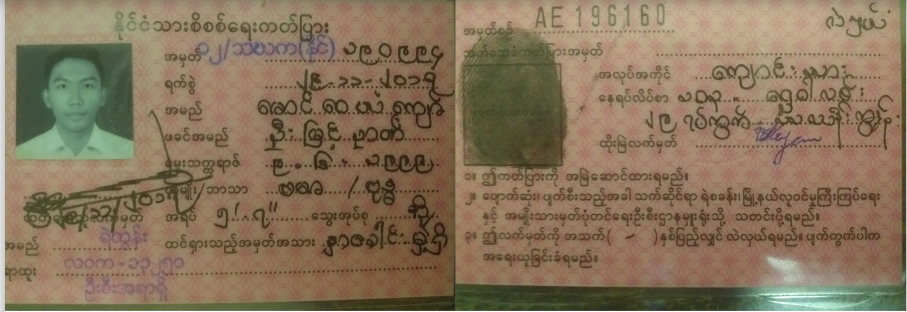 နိုင်ငံသားစိစစ်ရေးကတ်ပြား
အမှတ် ၁၂/သဃက(နိုင်) ၁၉၀၉၉၄
ရက်စွဲ
အမည်
ဖခင်အမည် ဦး မြင့်
မွေးသက္ကရာဇ် ၁၉၉၉
လူမျိုး/ဘာသာ ဗမာ / ဗုဒ္ဓ
အရပ် ၅' ၇" သွေးအုပ်စု အို
ထင်ရှားသည့်အမှတ်အသား
အမည် ရဲထွန်း
လဝက - ၁၃၂၅၁
ဦးစီးအရာရှိ
AE 196160
အမှတ်စဉ်
အလုပ်အကိုင် ကျောင်းသား
နေရပ်လိပ်စာ
ထိုးမြဲလက်မှတ်
၁။ ဤကတ်ပြားကို အမြဲဆောင်ထားရမည်။
၂။ ပျောက်ဆုံး၊ ပျက်စီးသည့်အခါ သက်ဆိုင်ရာ ရဲစခန်း၊ မြို့နယ်လူဝင်မှုကြီးကြပ်ရေး
နှင့် အမျိုးသားမှတ်ပုံတင်ရေးဦးစီးဌာနမှူးရုံးသို့ သတင်းပို့ရမည်။
၃။ ဤလက်မှတ်ကို အသက် ( – ) နှစ်ပြည့်လျှင် လဲလှယ်ရမည်။ ပျက်ကွက်ပါက
အရေးယူခြင်းခံရမည်။